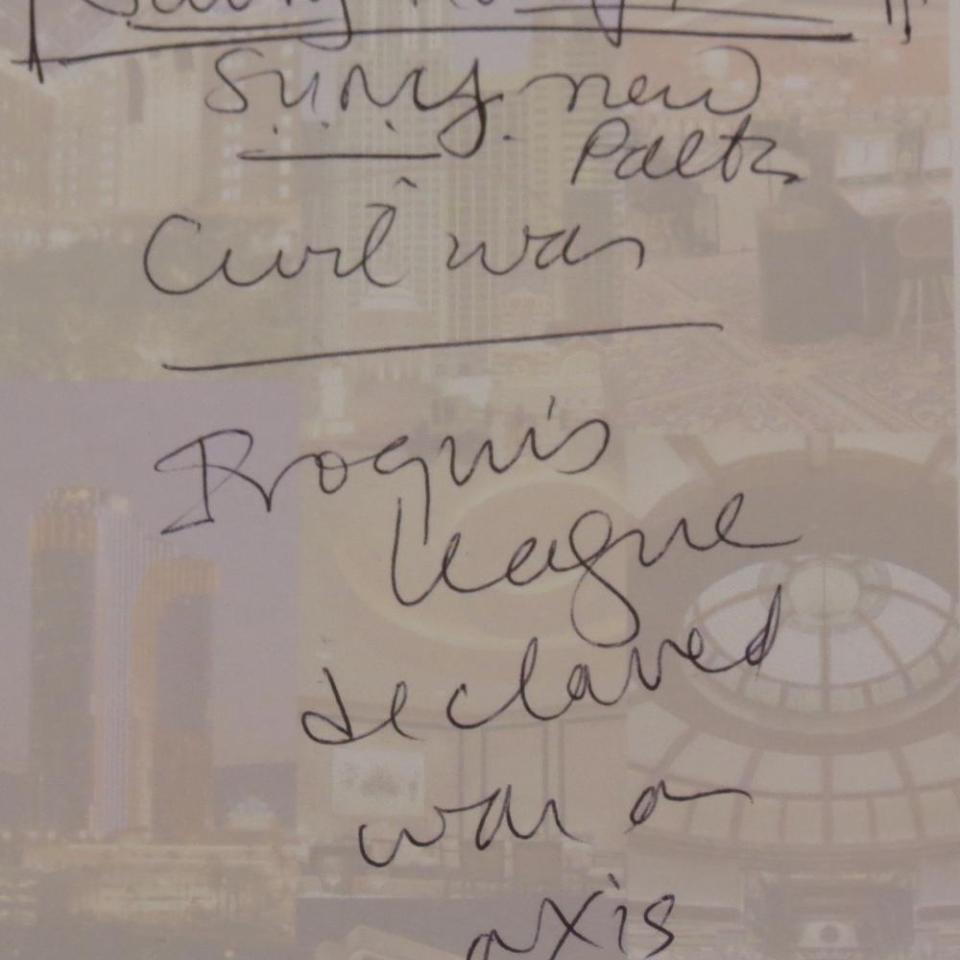 SUNY new
Paltz
Civil war
Iroquis
league
declared
war on
axis